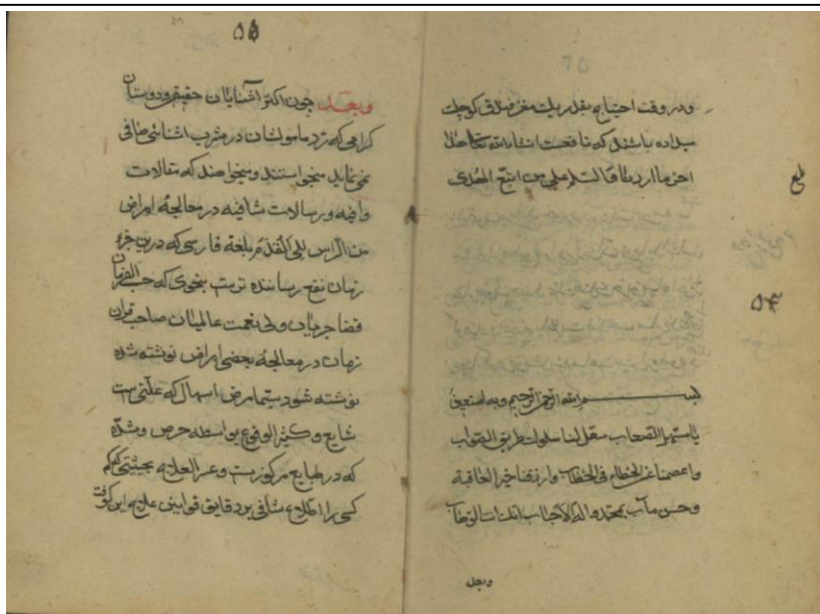 و در وقت احتیاج بقدر یک مغز فندق کوچک
میداده باشند که نافعست انشاء الله تعالی هذا
اخر ما اردنا والسلام علی من اتبع الهدی
بسم الله الرحمن الرحیم وبه نستعین
سهل لنا سلوک طریق الصواب
واعصمنا عن الخطاء فی الخطاب وارزقنا خیر العاقبة
وحسن مآب بمحمد واله الانجاب انک انت الوهاب
وبعد
۵۳
۵۵
وبعد چون اکثر آشنایان حقیقی و دوستان
کرامی که زد مامولشان در مشرب اشنائی صافی
نمی نماید میخواستند و میخواهند که مقالات
وافیه و رسالات شافیه در معالجهٔ امراض
من الراس الی القدم بلغة فارسی که درین جزء
زمان نفع رساننده ترست بنحوی که حسب الفرمان
قضا جریان ولی نعمت عالمیان صاحب قران
زمان در معالجهٔ بعضی امراض نوشته شده
نوشته شود سیما مرض اسهال که علتی است
شایع و کثیر الوقوع بواسطه حرص و شدّه
که در طبایع مرکوزست و عسر العلاج بحیثیتی که کم
کسی را اطلاع شافی بر دقایق قوانین علاج این کوفت